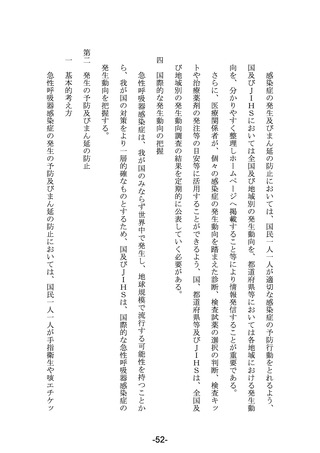 感染症の発生及びまん延の防止においては、国民一人一人が適切な感染症の予防行動をとれるよう、
国及びJIHSにおいては全国及び地域別の発生動向を、都道府県等においては各地域における発生動
向を、分かりやすく整理しホームページへ掲載すること等により情報発信することが重要である。
さらに、医療関係者が、個々の感染症の発生動向を踏まえた診断、検査試薬の選択の判断、検査キッ
トや治療薬剤の発注等の目安等に活用することができるよう、国、都道府県等及びJIHSは、全国及
び地域別の発生動向調査の結果を定期的に公表していく必要がある。
四 国際的な発生動向の把握
急性呼吸器感染症は、我が国のみならず世界中で発生し、地球規模で流行する可能性を持つことか
ら、我が国の対策をより一層的確なものとするため、国及びJIHSは、国際的な急性呼吸器感染症の
発生動向を把握する。
第二 発生の予防及びまん延の防止
一 基本的考え方
急性呼吸器感染症の発生の予防及びまん延の防止においては、国民一人一人が手指衛生や咳エチケッ
-52-